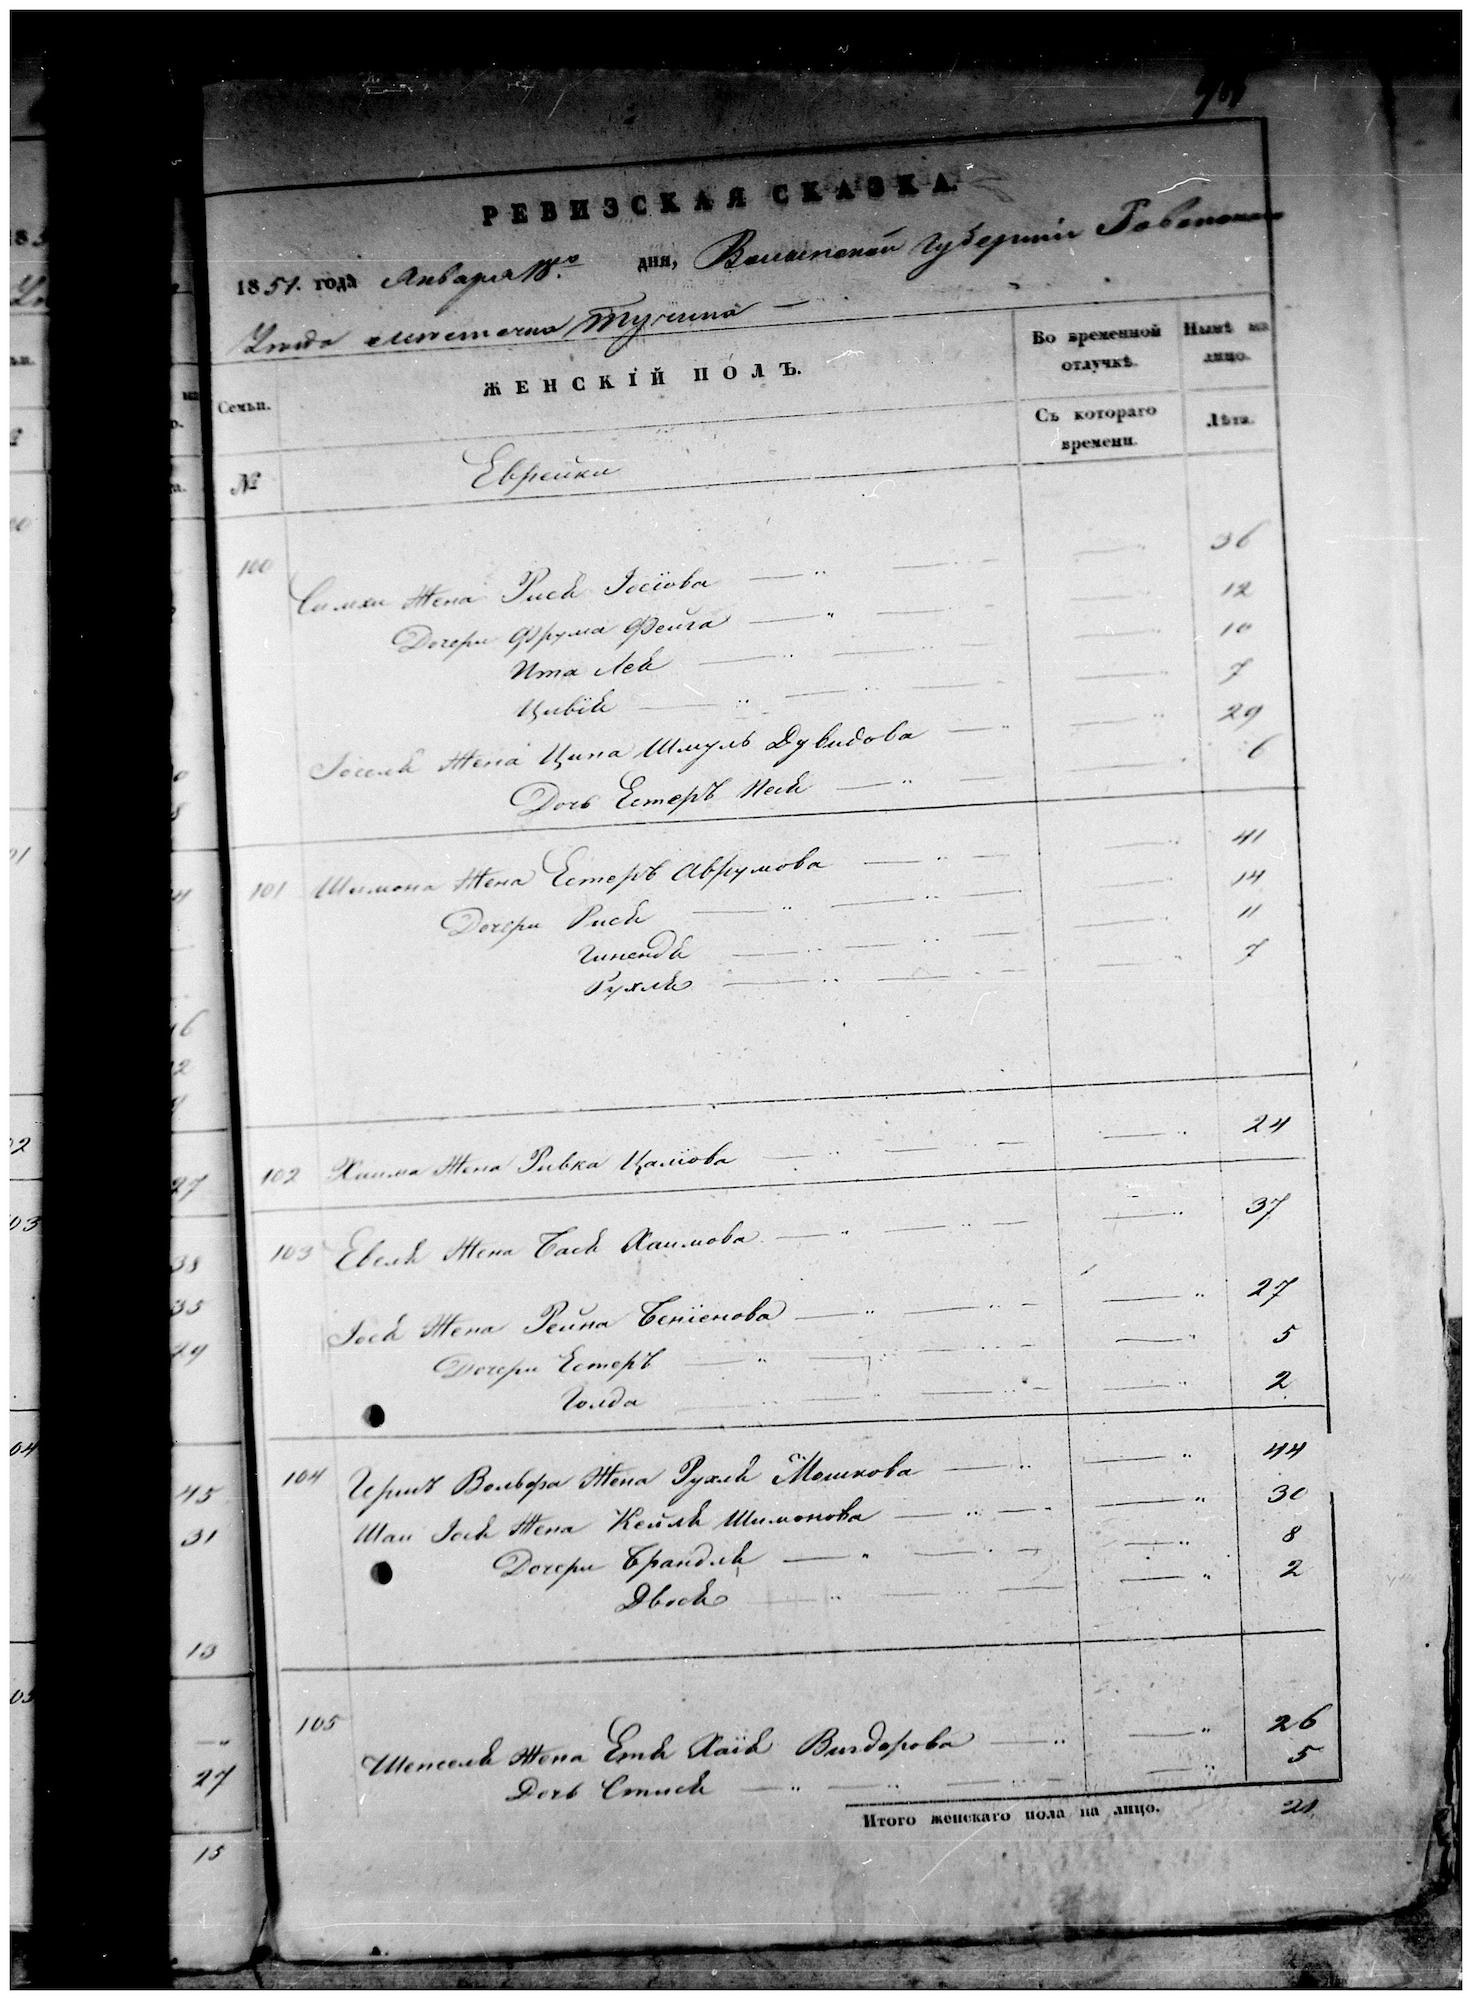 РЕВИЗСКАЯ СКАЗКА.
1851. года Января дня, Волынской Губерніи Ровенскаго
Уѣзда мѣстечка Тучина
Семьи. ЖЕНСКІЙ ПОЛЪ. Во временной отлучкѣ. Нынѣ на лицо.
№ Еврейки Съ котораго времени. Лѣта.
100 Симхи Жена Рися Іосіова 36
Дочери Фрума Фейга 12
Ита Лея 10
Цивія 7
Іоселя Жена Ципа Шмуль Дувидова 29
Дочь Естеръ Песя 6
101 Шимона Жена Естеръ Аврумова 41
Дочери Рися 14
Гинендя 11
Рухля 7
102 Хаима Жена Ривка Цаліова 24
103 Евеля Жена Бася Хаимова 37
Іося Жена Рейна Бенісиова 27
Дочери Естеръ 5
Голда 2
104 Гершъ Вольфа Жена Рухля Мошкова 44
Шаи Іося Жена Кейля Шимонова 30
Дочери Брандля 8
Двося 2
105 Шепселя Жена Етя Хаія Вигдорова 26
Дочь Стися 5
Итого женскаго пола на лицо. 21
00
01
02
03
04
05
27
38
35
29
45
31
13
27
15